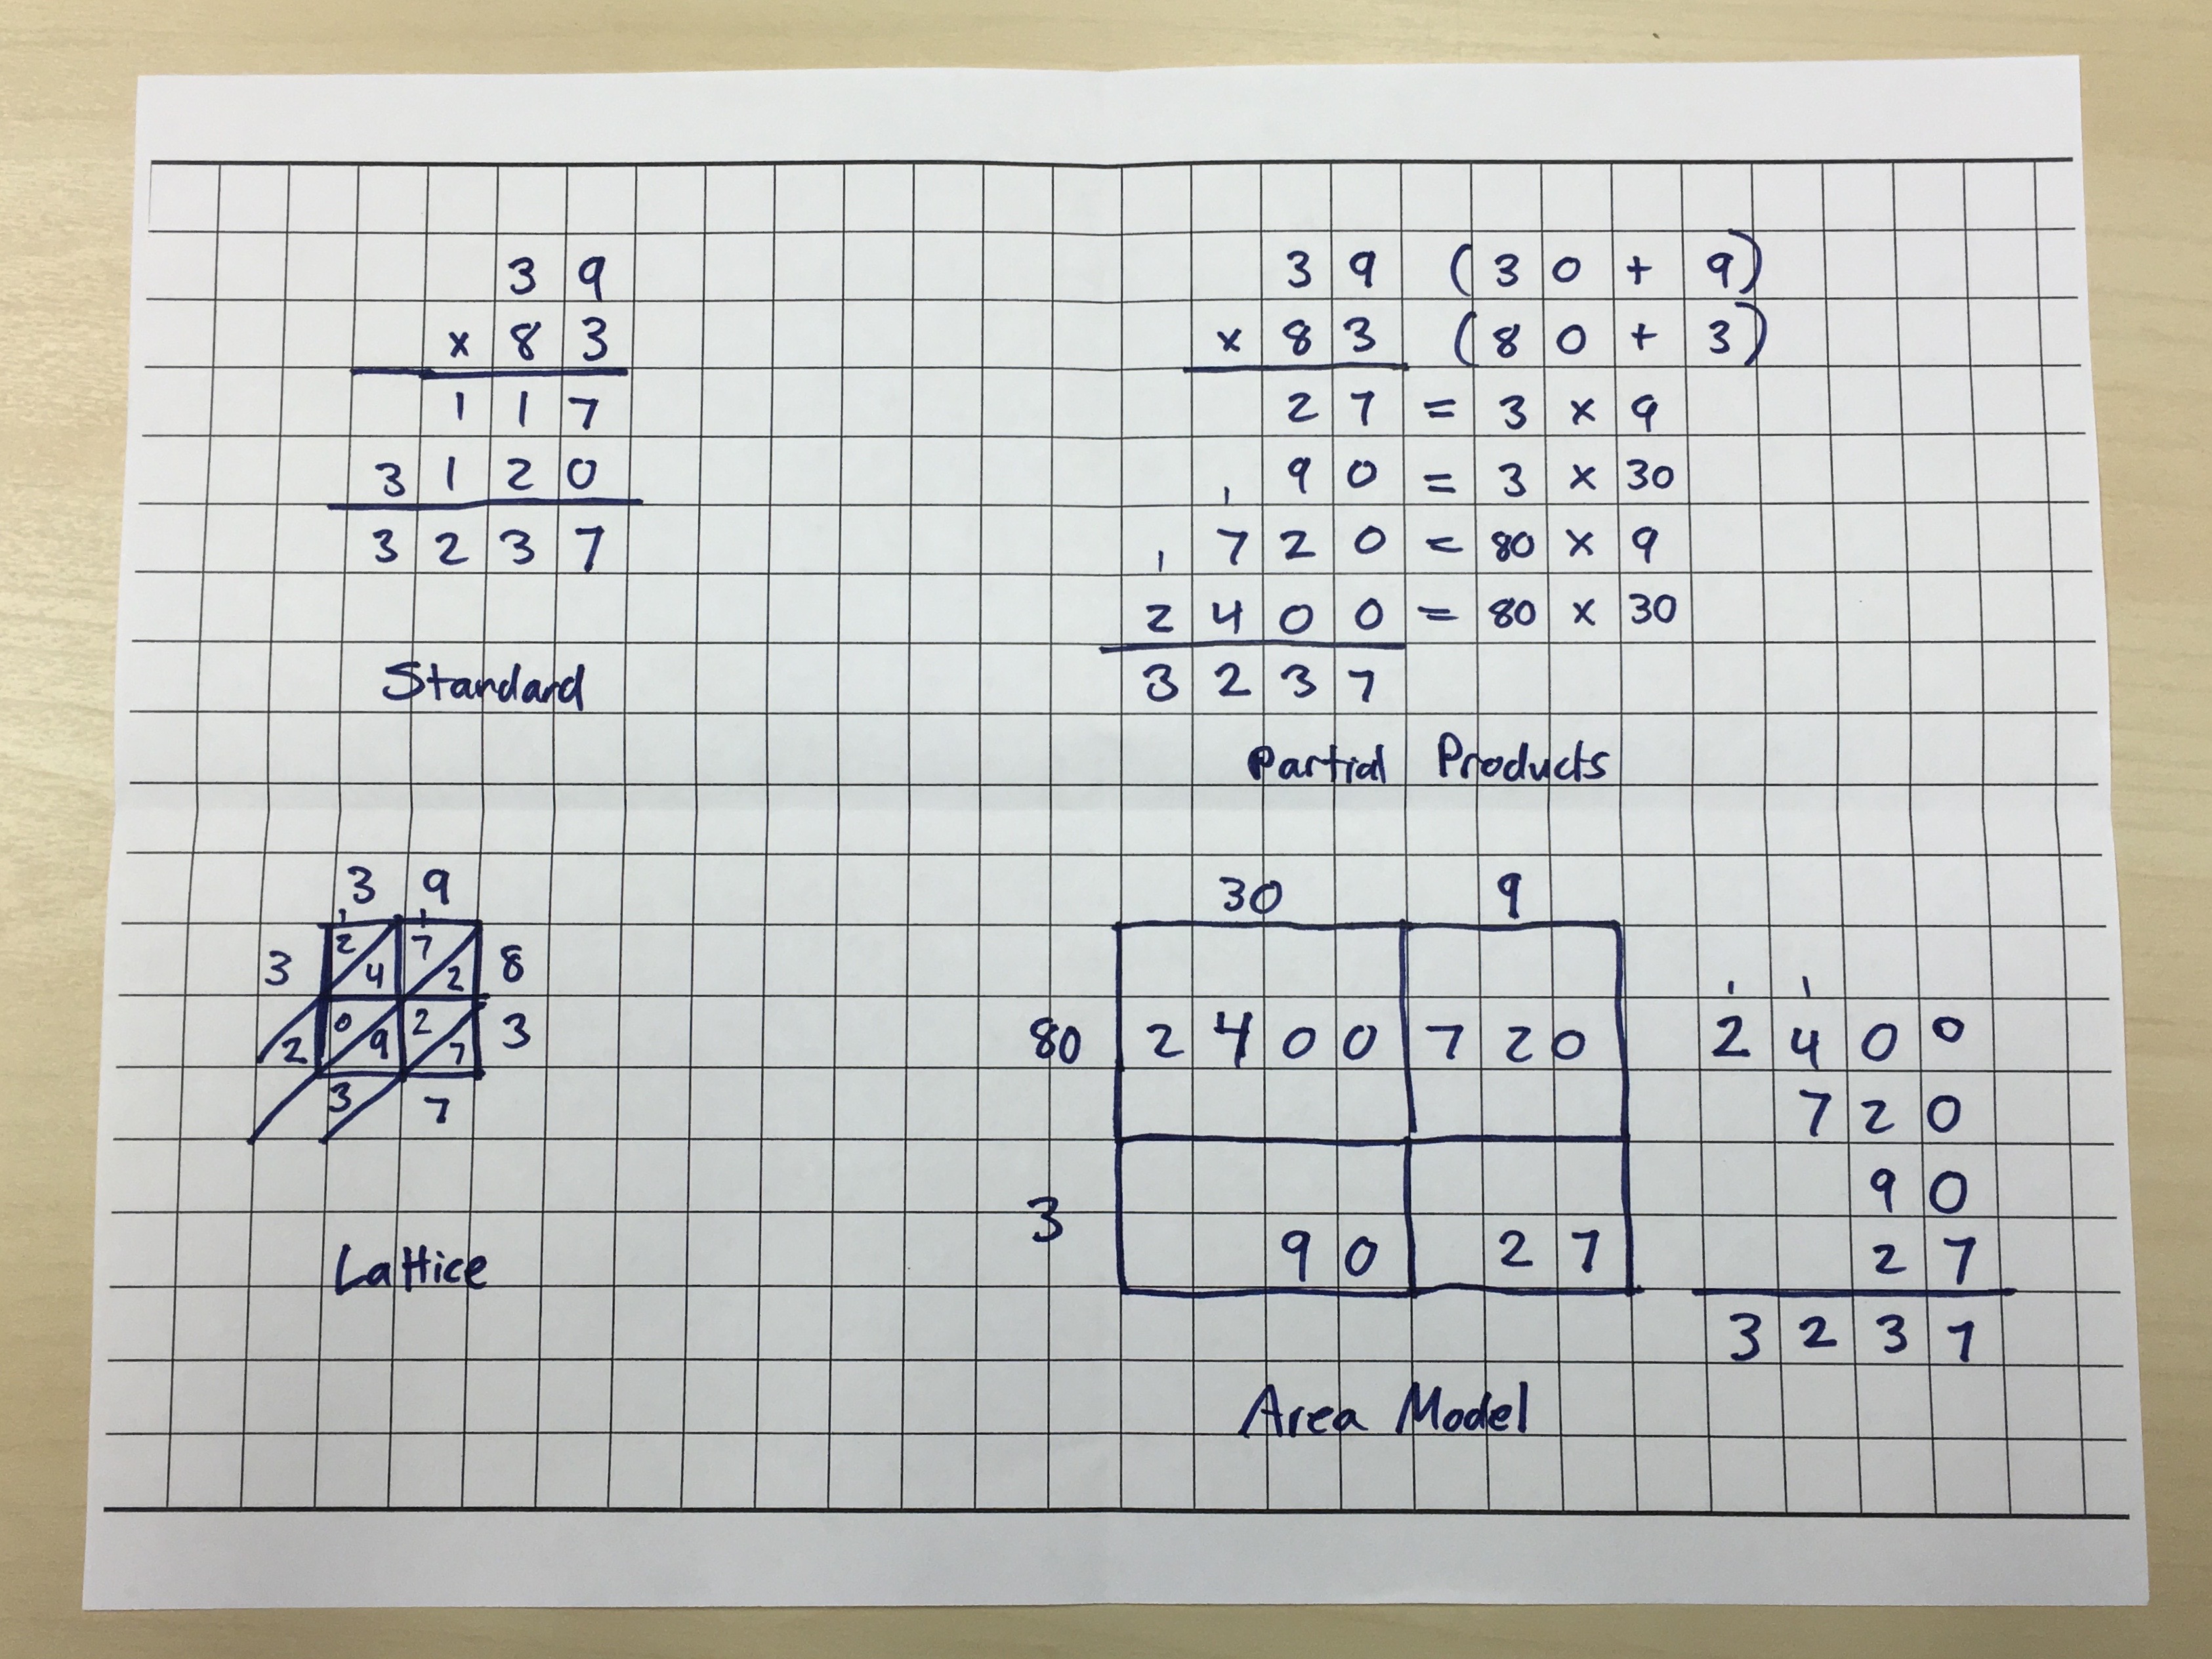 39
x 83
117
3120
3237
Standard
39 (30 + 9)
x 83 (80 + 3)
27 = 3 x 9
90 = 3 x 30
1
720 = 80 x 9
1
2400 = 80 x 30
3237
Partial Products
3 9
1 1
3 2 4 7 2 8
2 0 9 2 7 3
3 7
Lattice
30 9
80 2400 720
3 90 27
1 1
2400
720
90
27
3237
Area Model